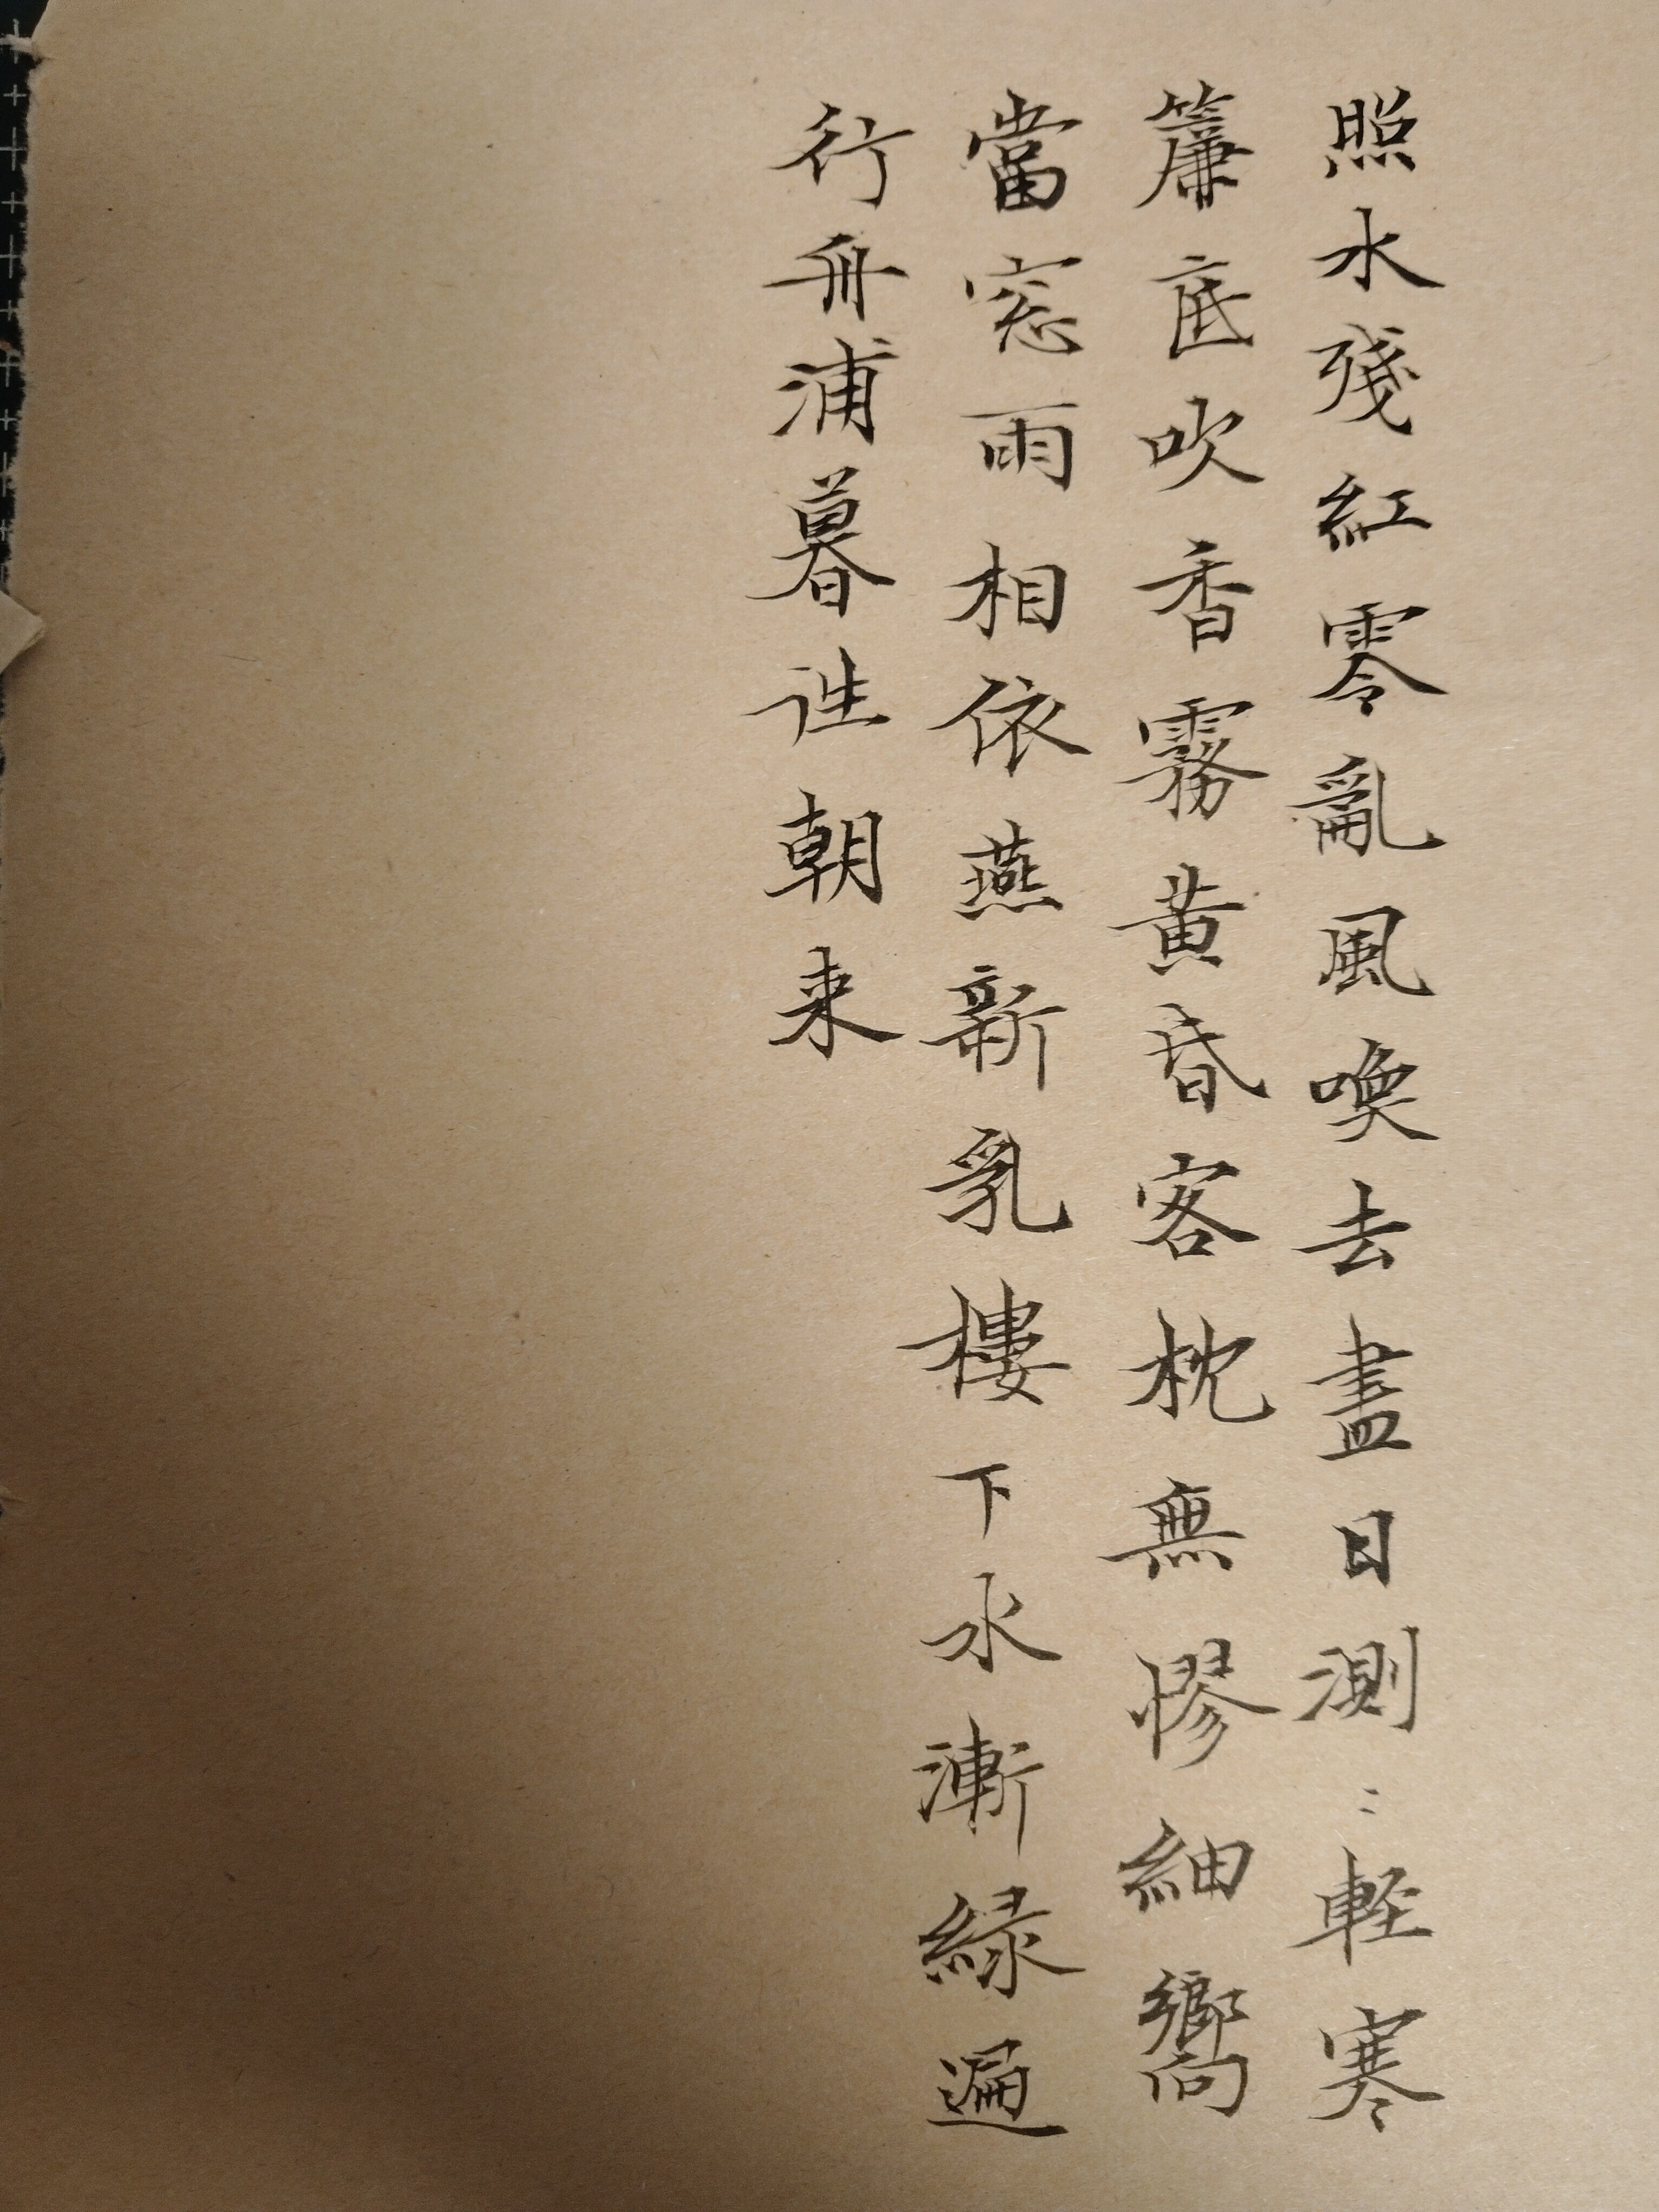 照水殘紅零亂風喚去盡日測〻輕寒
簾底吹香霧黃昏客枕無憀細嚮
當窓雨相依燕新乳樓下水漸綠遍
行舟浦暮往朝来